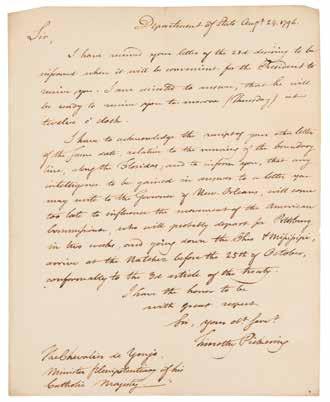 Department of State Augt. 24. 1796.
Sir,
I have received your letter of the 23d desiring to be
informed when it will be convenient for the President to
receive you. I am directed to answer, that he will
be ready to receive you to morrow (Thursday) at
twelve o'clock.
I have to acknowledge the receipt of your other letter
of the same date, relative to the running of the boundary
line, along the Floridas, and to inform you, that any
intelligence to be gained in answer to a letter you
may write to the Governor of New Orleans, will come
too late to influence the movement of the American
Commissioner, who will probably depart for Pittsburg
in two weeks, and going down the Ohio & Missisippi,
arrive at the Natchez before the 25th of October,
conformably to the 3d article of the treaty.
I have the honor to be
with great respect,
Sir, your obt. Servt.
Timothy Pickering
The Chevalier de Yrujo
Minister plenipotentiary of his
Catholic Majesty